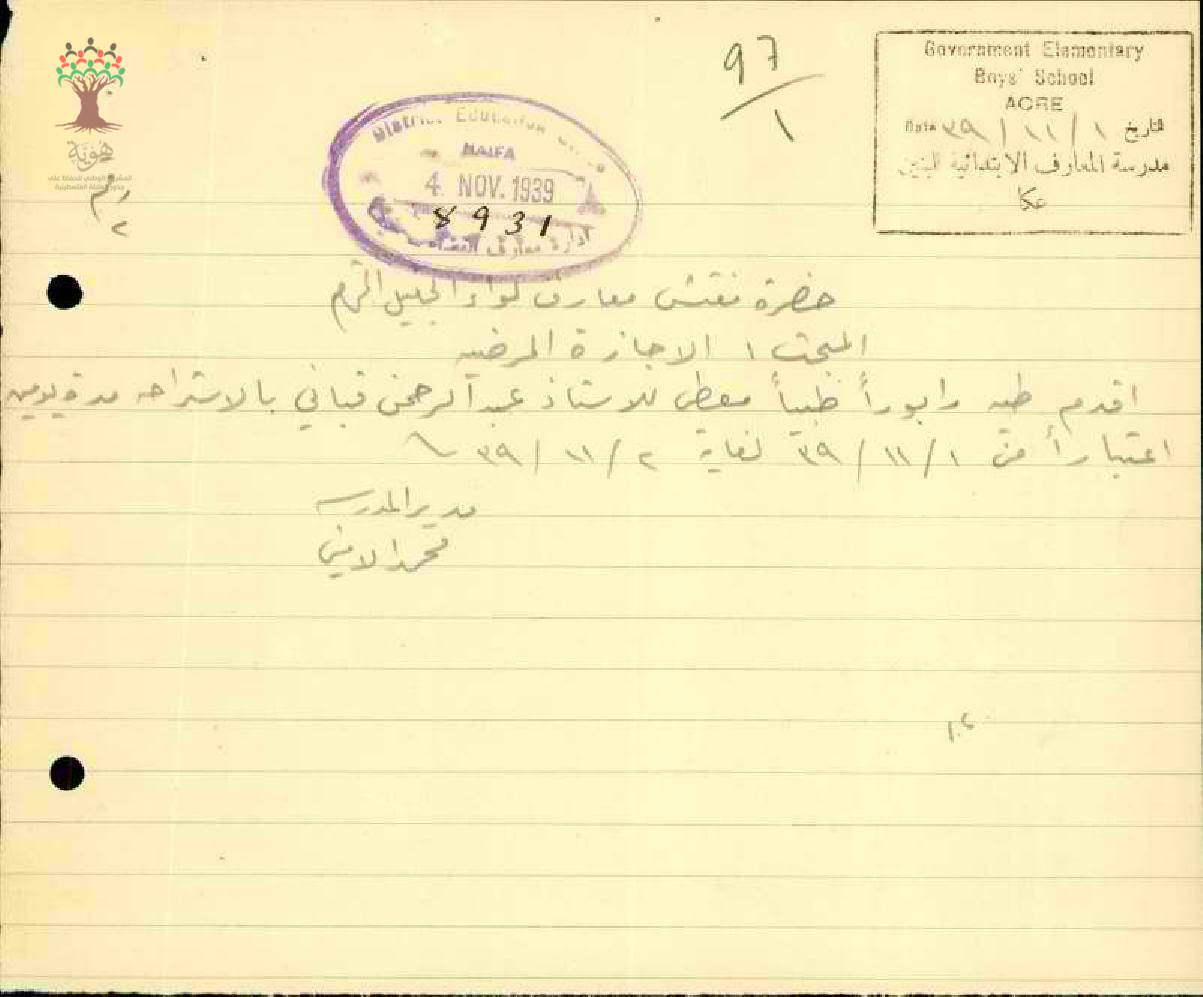 هوية
المشروع الوطني للحفاظ على
جذور العائلة الفلسطينية
97/1
Government Elementary
Boys' School
ACRE
Date ٣٩/١١/١ تاريخ
مدرسة المعارف الابتدائية للبنين
عكا
District Education Office
HAIFA
4 NOV. 1939
8931
ادارة معارف
حضرة مفتش معارف لواء الجليل المحترم
المبحث : الاجازة المرضيه
اقدم طيه رابوراً طبياً معطى للاستاذ عبد الرحمن قباني بالاستراحه مدة يومين
اعتباراً من ٣٩/١١/١ لغاية ٣٩/١١/٢
مدير المدرسه
محمد الاميني